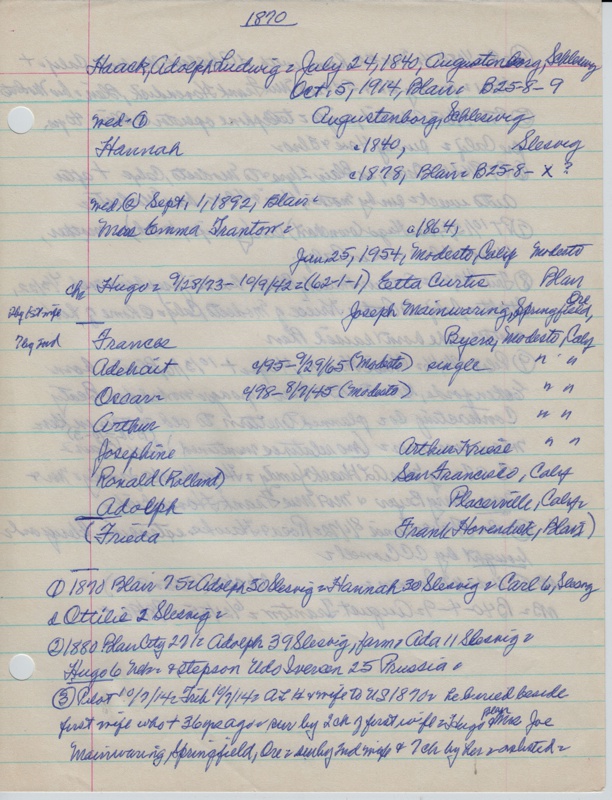 1870
Haack, Adolph Ludwig = July 24, 1840, Augustenberg, Schleswig
Oct. 5, 1914, Blair = B25-8-9
med ① Augustenborg, Schleswig
Hannah c1840, Slesvig
c1878, Blair = B25-8- x ?
med ② Sept. 1, 1892, Blair =
Mrs Emma Tranton = c1864,
Jan 25, 1954, Modesto, Calif Modesto
ch: Hugo = 9/28/73 - 10/9/42 = (62-1-1) Etta Curtis Blair
2 by 1st wife Joseph Mainwaring, Springfield, Ore,
7 by 2nd Frances Byers, Modesto, Calif
Adehait c/95 - 9/29/65 (Modesto) single " "
Oscar = c/98 - 8/7/45 (Modesto) " "
Arthur " "
Josephine Arthur Kruse " "
Ronald (Rolland) San Francisco, Calif
Adolph Placerville, Calif =
(Frieda Frank Hovendick, Blair)
① 1870 Blair 75 = Adolph 30 Slesvig = Hannah 30 Slesvig = Carl 6, Slesvig
& Ottilie 2 Slesvig =
② 1880 Blair City 271 = Adolph 39 Slesvig, farm = Ada 11 Slesvig =
Hugo 6 Neb = & stepson Udo Iversen 25 Prussia =
③ Pilot 10/7/14 = Trib 10/7/14 = ALH & wife to US 1870 = he buried beside
first wife who + 36 yrs ago = sur by 2 ch of first wife = Hugo & Mrs Joe
Mainwaring, Springfield, Ore = sur by 2nd wife & 7 ch by her =